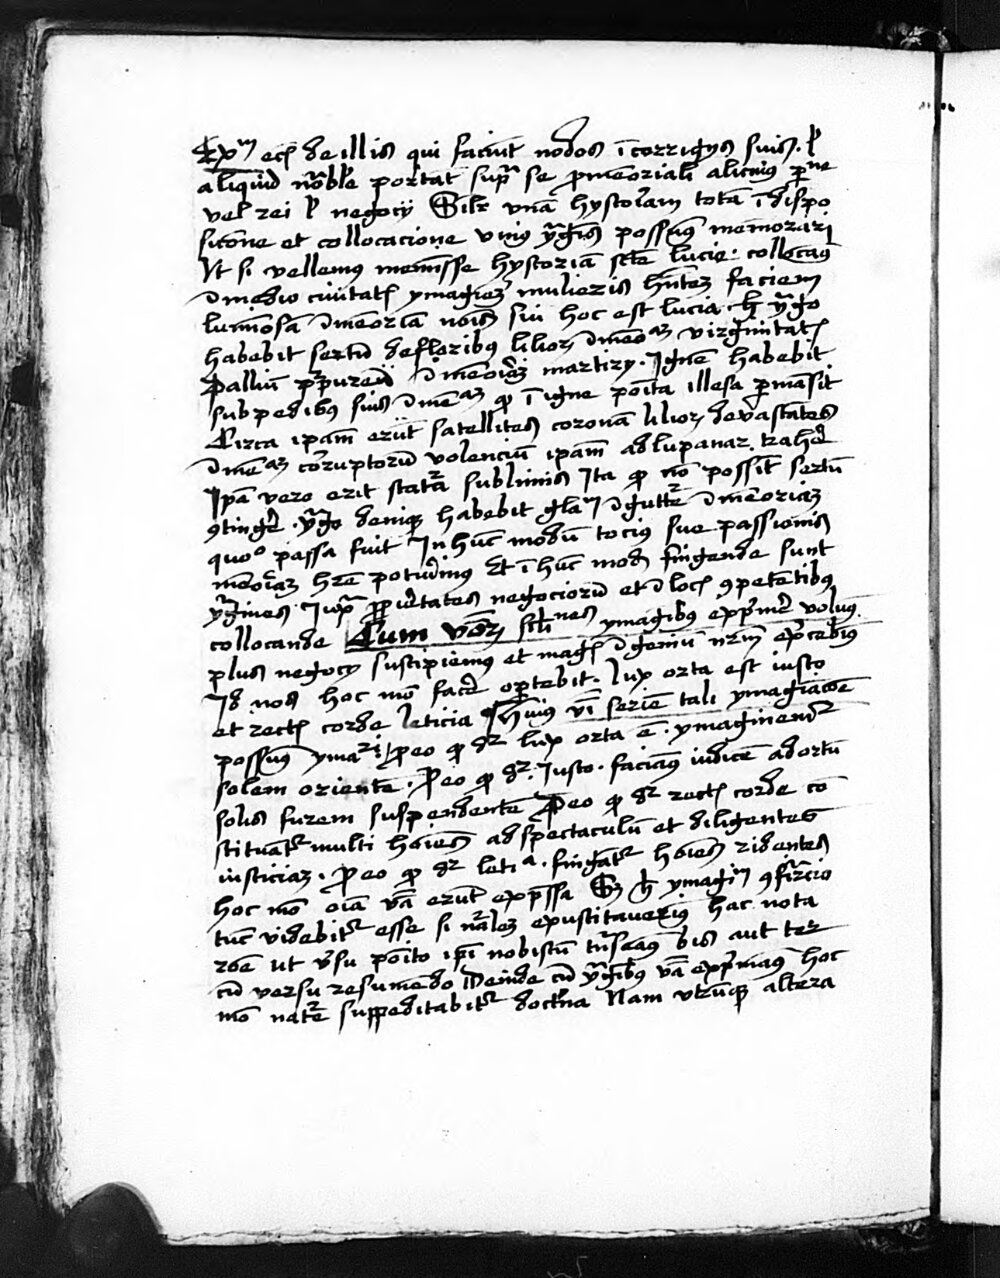 Exm eciam de illis qui faciunt nodos i corrigijs suis . vel
aliquid notabile portant supra se pro memoriali alicuius persone
vel rei vel negocij Similiter vnam hystoriam totam i dispo
sicione et collocacione vnius ymaginis possumus memorari
Vt si vellemus meminisse hystoriam sancte lucie . collocamus
in medio ciuitatis ymaginem mulieris habentem faciem
luminosam in memoriam nominis sui hoc est lucia . hec ymago
habebit sertum de floribus liliorum in memoriam virginitatis
Pallium purpureum in memoriam martirij . Ignem habebit
sub pedibus suis in memoriam quod in igne posita illesa permansit
Circa ipsam erunt satellites coronam liliorum deuastantes
in memoriam corruptorum volencium ipsam ad lupanar trahere
Ipsa vero erit statura sublimis Ita quod non possint sertum
contingere . ymago denique habebit gladium in gutture in memoriam
quomodo passa fuit In hunc modum tocius sue passionis
memoriam habere poterimus Et in hunc modum fingende sunt
ymagines . Iuxta proprietates negociorum et in locis competentibus
collocande Cum versus similitudines ymaginibus exprimere volumus
plus negocij suscipiemus et magis ingenium nostrum exercebimus
Id nos hoc modo facere oportebit . lux orta est iusto
et rectis corde leticia Huius versus seriem tali ymaginacione
possumus ymaginari Pro eo quod dicitur lux orta est . ymaginemur
solem orientem . Pro eo quod dicitur . Iusto . faciamus iudicem ad ortum
solis furem suspendentem Pro eo quod dicitur rectis corde con
stituantur multi homines ad spectaculum et diligentes
iusticiam . Pro eo quod dicitur leticia . fingantur homines ridentes
hoc modo omnia verba erunt expressa Sed hec ymaginum confirmacio
tunc videbitur esse si naturalem exuscitauerimus hac nota
cionem ut versu posito ipsi nobiscum transeamus bis aut ter
eum versum resumendo Deinde cum ymaginibus verba exprimamus hoc
modo nature suppeditabitur doctrina Nam utrumque altera